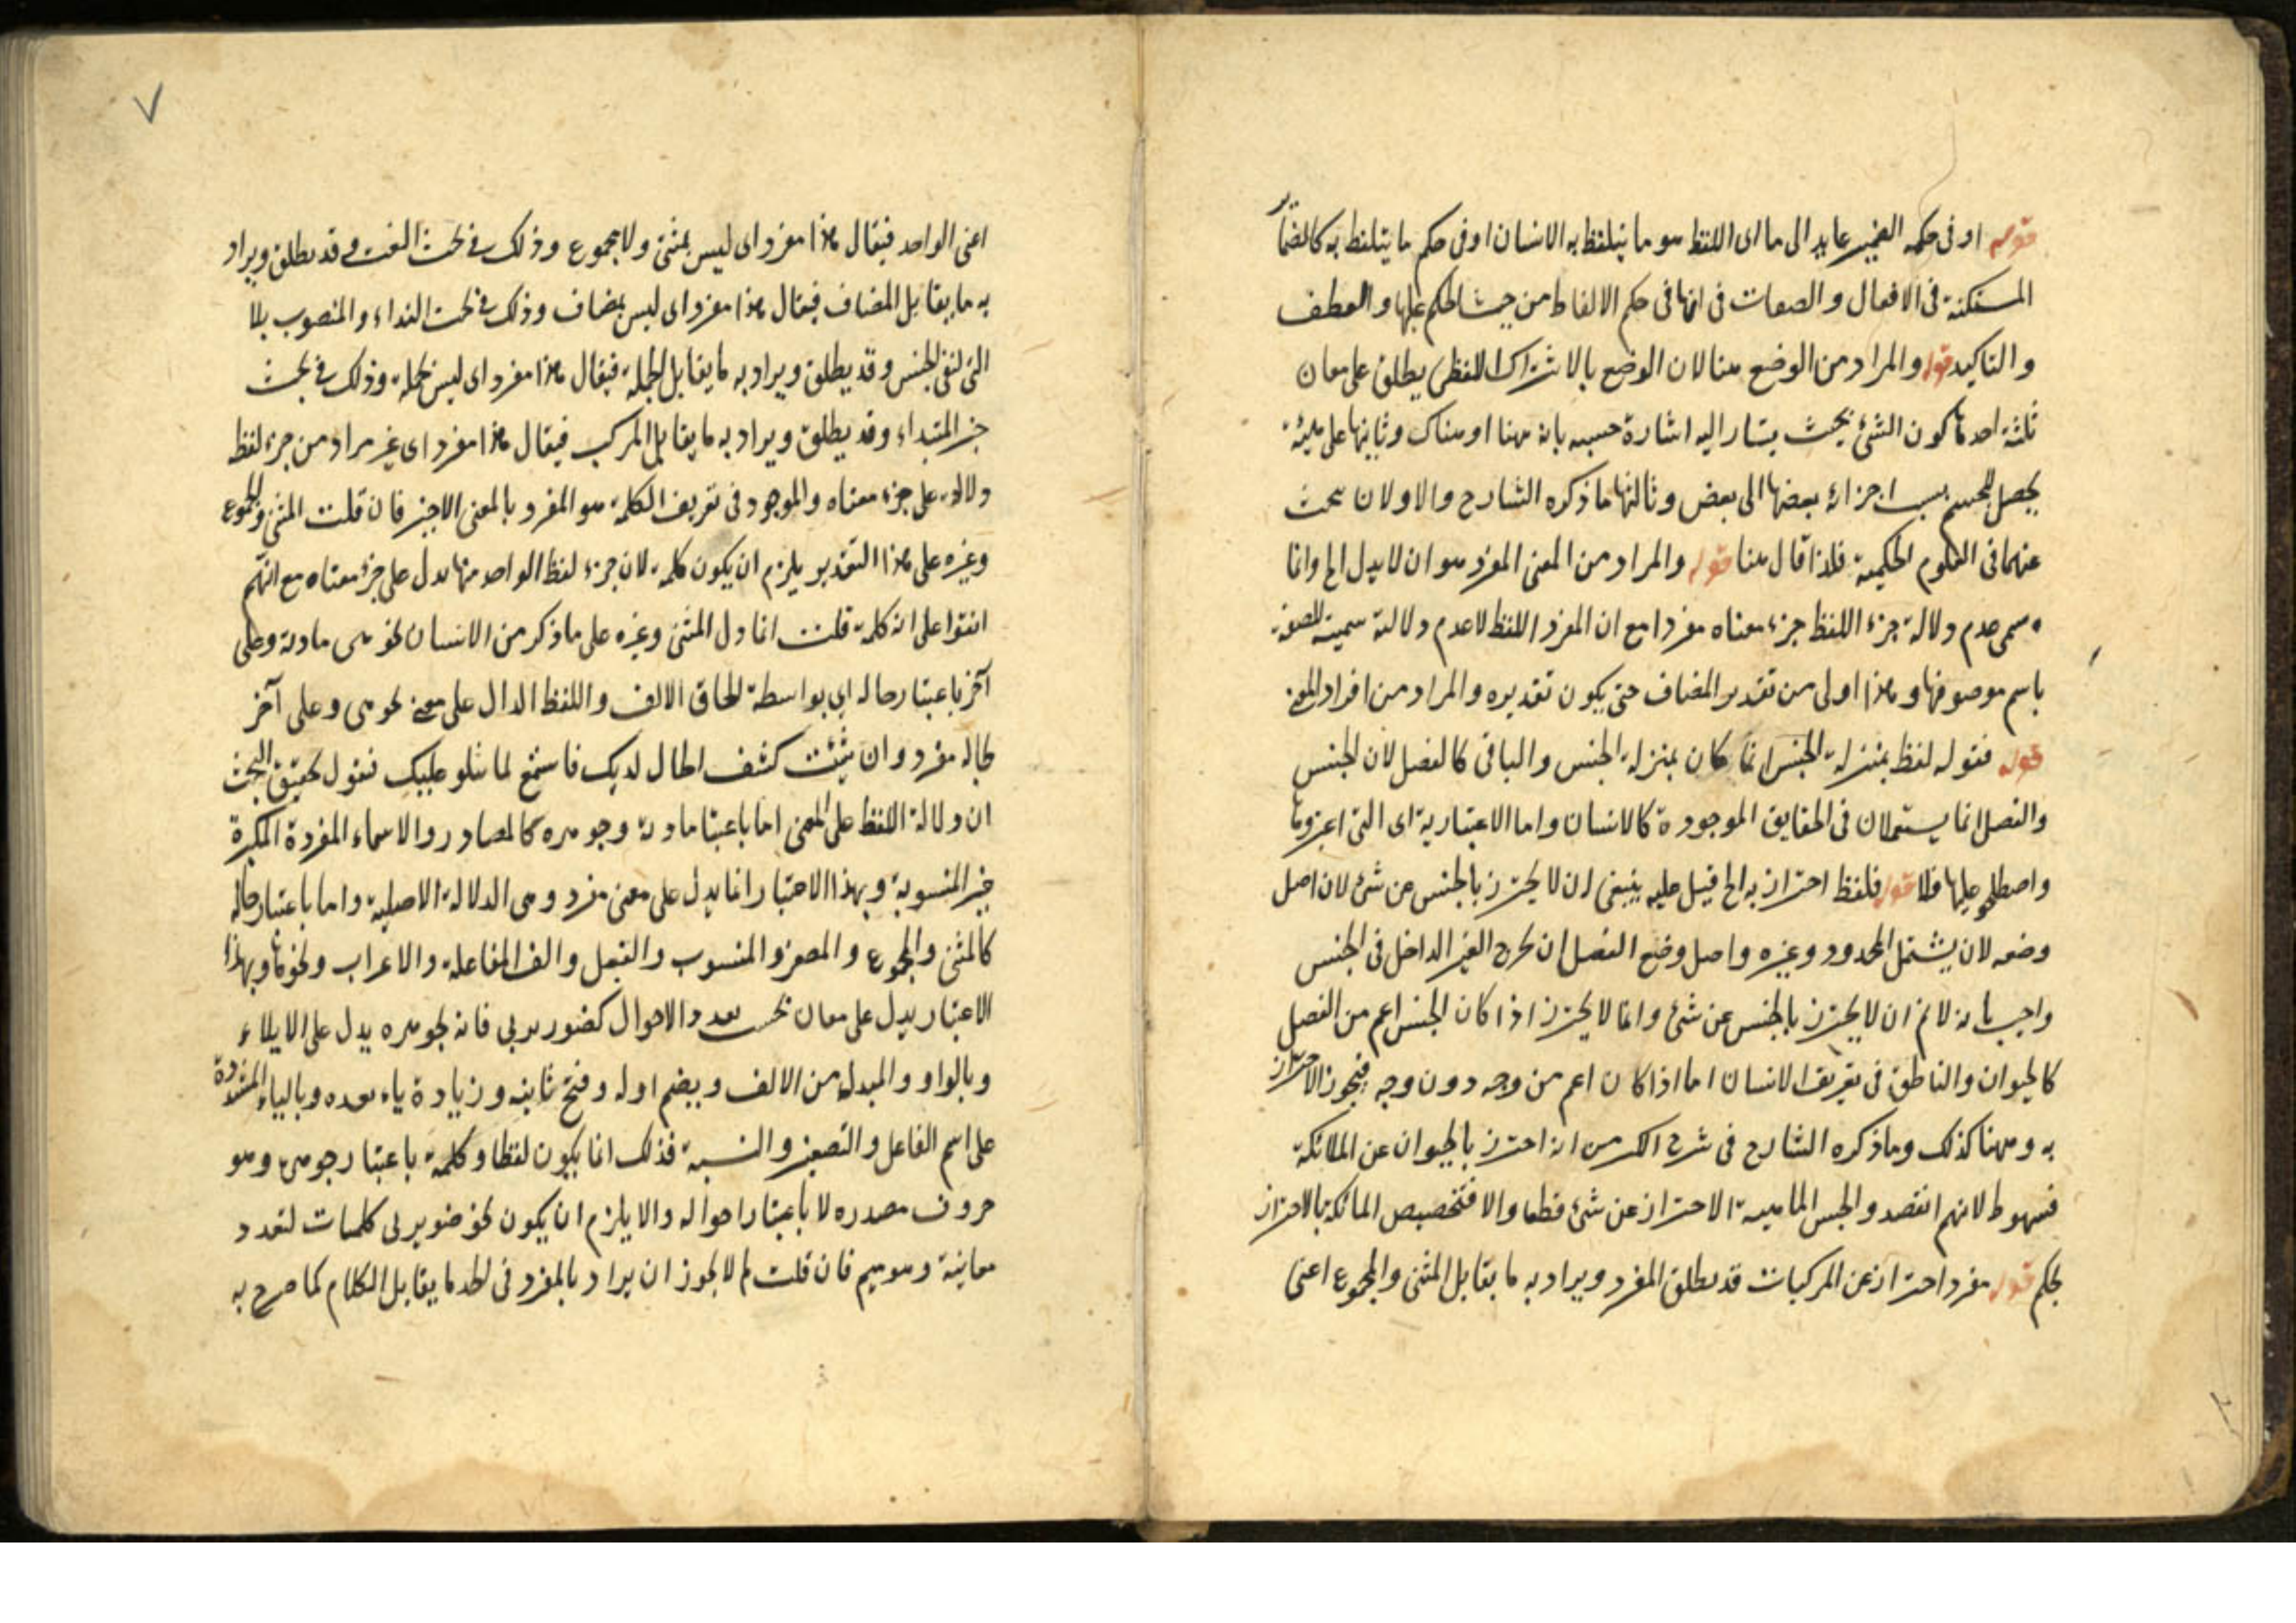 قوله او في حكمه الضمير عايد الى ما اى اللفظ هو ما يتلفظ به الانسان او في حكم ما يتلفظ به كالضماير
المستكنة في الافعال والصفات في انها في حكم الالفاظ من حيث الحكم عليها والعطف
والتاكيد قوله والمراد من الوضع هنا لان الوضع بالاشتراك اللفظي يطلق على معان
ثلثة احدها كون الشئ بحيث يشار اليه اشارة حسيه بانه ههنا او هناك وثانيها على هيئة
يحصل للجسم بنسب اجزائه بعضها الى بعض وثالثها ما ذكره الشارح والاولان يبحث
عنهما في العلوم الحكمية فلذا قال هنا قوله والمراد من المعنى المفرد هو ان لا يدل الخ وانما
سمى عدم دلالة جزء اللفظ جزء معناه مفردا مع ان المفرد اللفظ لا عدم دلالته تسمية للصفة
باسم موصوفها وهذا اولى من تقدير المضاف حتى يكون تقديره والمراد من افراد المعنى
قوله فقوله لفظ بمنزلة الجنس انما كان بمنزلة الجنس والباقى كالفصل لان الجنس
والفصل انما يستعملان في الحقايق الموجودة كالانسان واما الاعتبارية اى التى اعتبروها
واصطلحوا عليها فلا قوله فلفظ احتراز به الخ قيل عليه ينبغى ان لا يحترز بالجنس عن شئ لان اصل
وضعه لان يشتمل المحدود وغيره واصل وضع الفصل ان يخرج الغير الداخل في الجنس
واجيب بانه لا نم ان لا يحترز بالجنس عن شئ وانما لا يحترز اذا كان الجنس اعم من الفصل
كالحيوان والناطق في تعريف الانسان اما اذا كان اعم من وجه دون وجه فيجوز الاحتراز
به وههنا كذلك وما ذكره الشارح في شرح من انه احترز بالحيوان عن الملائكة
فسهو لانهم الاحتراز عن شئ قطعا والا فتخصيص الملائكة بالاحتراز
بحكم قوله مفرد احتراز عن المركبات قد يطلق المفرد ويراد به ما يقابل المثنى والمجموع اعنى
اعنى الواحد فيقال هذا مفرد اى ليس بمثنى ولا مجموع وذلك في بحث النعت وقد يطلق ويراد
به ما يقابل المضاف فيقال هذا مفرد اى ليس بمضاف وذلك في بحث النداء والمنصوب بلا
التى لنفى الجنس وقد يطلق ويراد به ما يقابل الجملة فيقال هذا مفرد اى ليس بجملة وذلك في بحث
خبر المبتداء وقد يطلق ويراد به ما يقابل المركب فيقال هذا مفرد اى غير مراد من جزء لفظ
دلالة على جزء معناه والموجود في تعريف الكلمة هو المفرد بالمعنى الاخير فان قلت المثنى والمجموع
وغيره على هذا التقدير يلزم ان يكون كلمة لان جزء لفظ الواحد منها يدل على جزء معناه مع انهم
اتفقوا على انه كلمة قلت انما دل المثنى وغيره على ما ذكر من الانسان مادته وعلى
آخر باعتبار حاله اى بواسطة الحاق الالف واللفظ الدال على معنى وعلى آخر
بحاله مفرد وان شئت كشف الحال لديك فاستمع لما نتلو عليك فنقول تحقيق البحث
ان دلالة اللفظ على المعنى اما باعتبار مادته وجوهره كالمصادر والاسماء المفردة المكبرة
غير المنسوبة وبهذا الاعتبار انما يدل على معنى مفرد وهى الدلالة الاصلية واما باعتبار حاله
كالمثنى والمجموع والمصغر والمنسوب والفعل والف المفاعلة والاعراب ونحوها وبهذا
الاعتبار يدل على معان بحسب تعدد الاحوال كضويربى فانه بجوهره يدل على الايلاء
وبالواو والمبدلة من الالف وبضم اوله وفتح ثانيه وزيادة ياء بعده وبالياء المشددة
على اسم الفاعل والتصغير والنسبة فذلك انما يكون لفظا وكلمة باعتبار جوهره وهو
حروف مصدره لا باعتبار احواله والا يلزم ان يكون نحو ضويربى كلمات لتعدد
معانيه فان قلت لم لا يجوز ان يراد بالمفرد في الحد ما يقابل الكلام كما صرح به